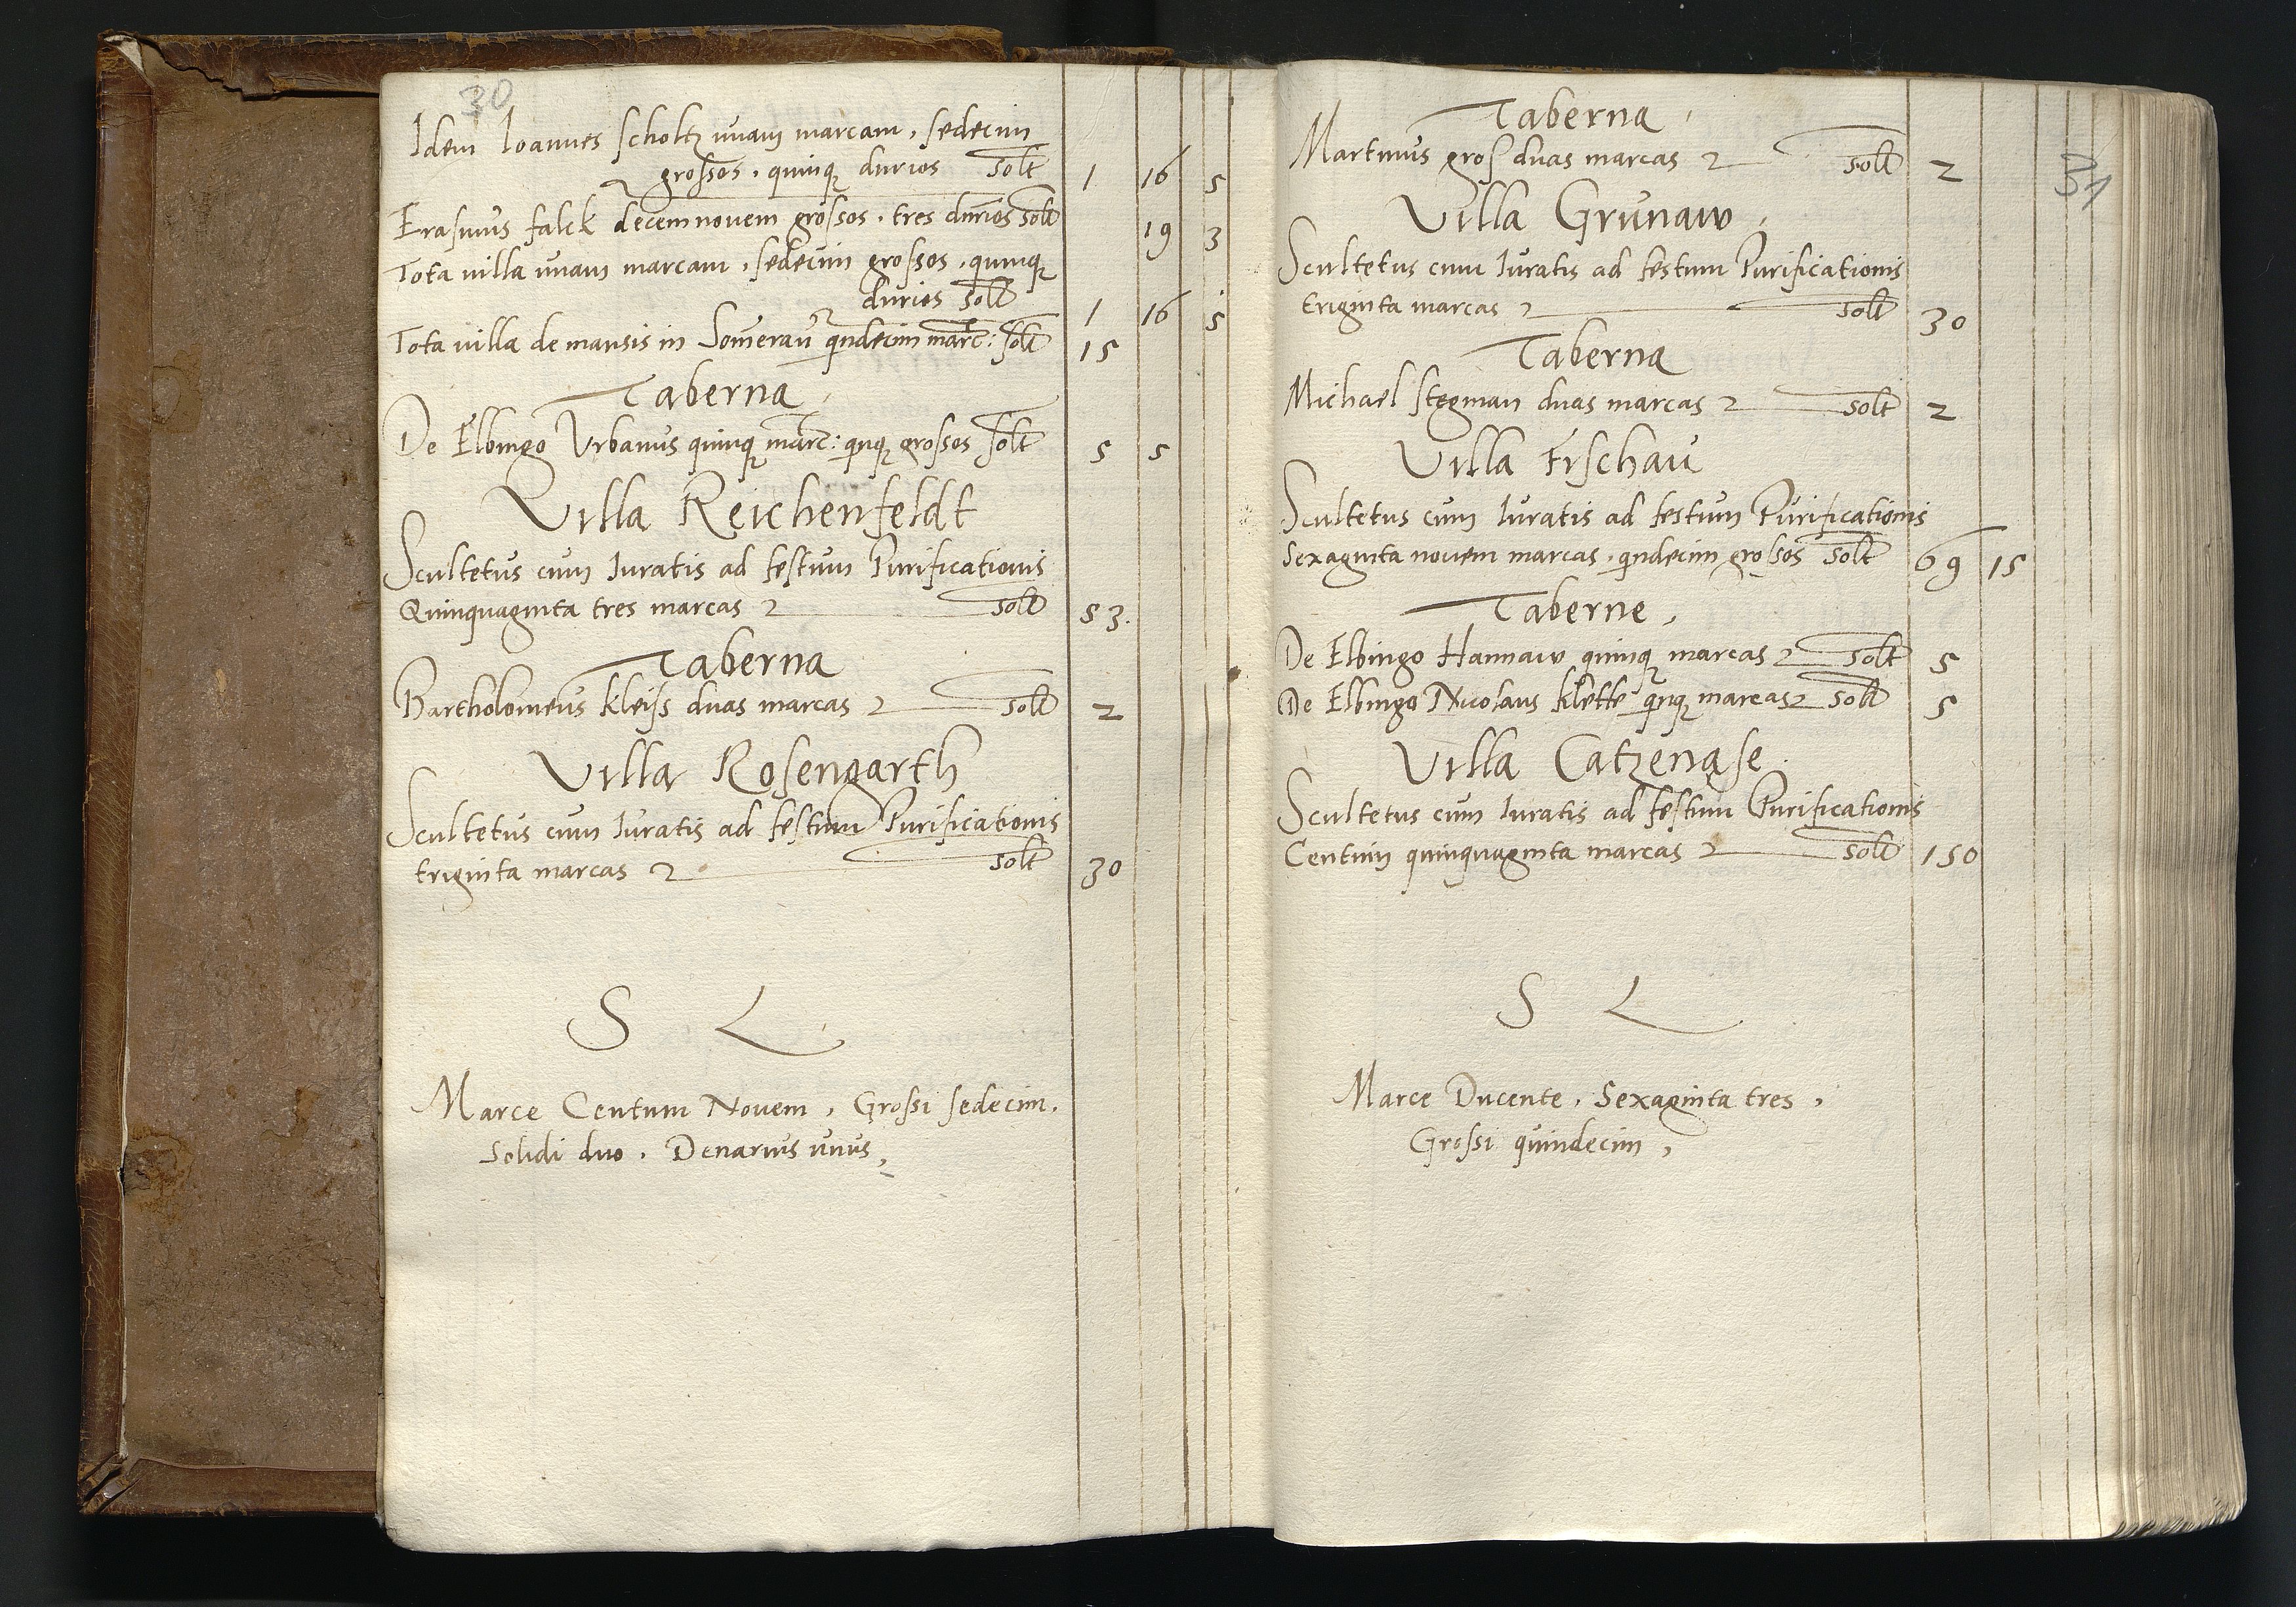 30
Idem Ioannes scholtz unam marcam, sedecim
grossos, quinq durios solt 1 16 5
Erasmus falck decemnovem grossos, tres durios solt 19 3
Tota villa unam marcam, sedecim grossos, quinq
durios solt 1 16 5
Tota villa de mansis in Somerau quindecim marc: solt 15
Taberna
De Elbingo Vrbanus quinq marc: quinq grossos solt 5 5
Villa Reichenfeldt
Scultetus cum Iuratis ad festum Purificationis
Quinquaginta tres marcas 2 solt 53.
Taberna
Bartholomeus kleiss duas marcas 2 solt 2
Villa Rosengarth
Scultetus cum Iuratis ad festum Purificationis
triginta marcas 2 solt 30
S L
Marce Centum Novem, Grossi sedecim.
Solidi duo. Denarius unus,
31
Taberna
Martinus gross duas marcas 2 solt 2
Villa Grunaw
Scultetus cum Iuratis ad festum Purificationis
triginta marcas 2 solt 30
Taberna
Michael stegman duas marcas 2 solt 2
Villa Fischau
Scultetus cum Iuratis ad festum Purificationis
Sexaginta novem marcas, quindecim grossos solt 69 15
Taberne,
De Elbingo Hannaw quinq marcas 2 solt 5
De Elbingo Nicolaus klette quinq marcas 2 solt 5
Villa Catzenase
Scultetus cum Iuratis ad festum Purificationis
Centum quinquaginta marcas 2 solt 150
S L
Marce Ducente, Sexaginta tres,
Grossi quindecim,